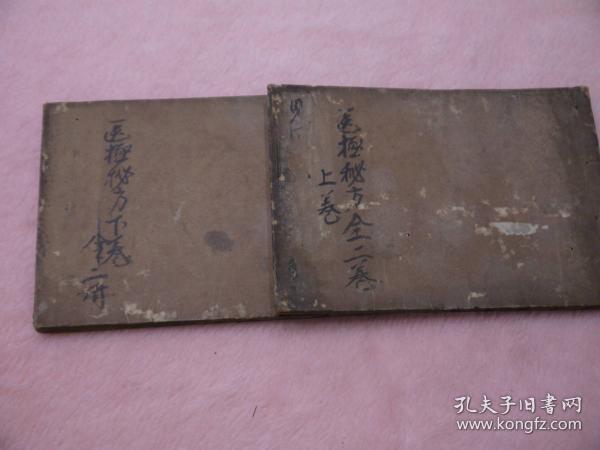 医極秘方下巻
全二冊
医極秘方全二巻
上巻
孔夫子旧书网
www.kongfz.com